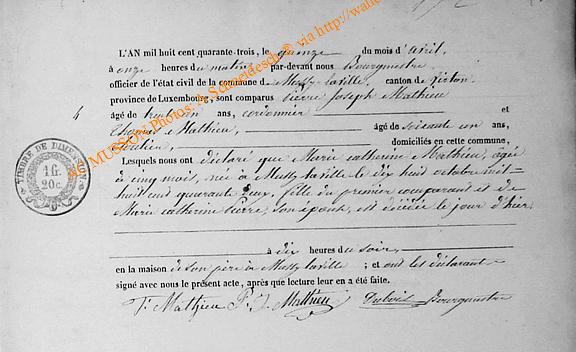 L'AN mil huit cent quarante-trois, le quinze du mois d'avril,
à onze heures du matin par-devant nous Bourgmestre
officier de l'état civil de la commune de Mussy-laville, canton de Virton
province de Luxembourg, sont comparus Pierre Joseph Mathieu
4 âgé de trente ans, cordonnier et
Thomas Mathieu, âgé de soixante un ans,
domiciliés en cette commune,
Lesquels nous ont déclaré que Marie catherine Mathieu, agée
de cinq mois, née à Mussy laville le dix huit octobre mil
huit cent quarante deux, fille du premier comparant et de
Marie catherine Pierre, son épouse, est décédée le jour d'hier
à dix heures du soir,
en la maison de son père à Mussy laville ; et ont les déclarants
signé avec nous le présent acte, après que lecture leur en a été faite.
T. Mathieu P. J. Mathieu Dubois Bourgmestre
TIMBRE DE DIMENSION
1 fr.
20 c.
MUSSON Photos: A. Schneidesch © via http://www